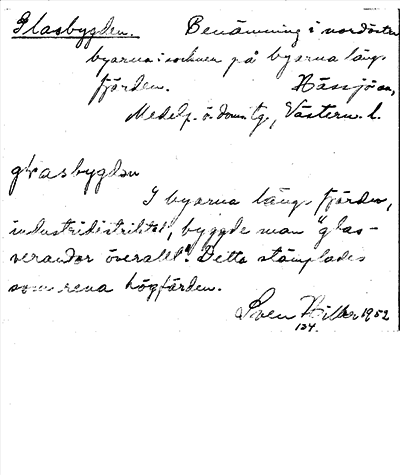 Glasbygden. Benämning i nordöstra
byarna i socknen på byarna längs
fjärden. Hässjö sn,
Medelp. ö. domsg., Västern. l.
glasbygden
I byarna längs fjärden,
industridistriktet, byggde man "glas-
verandor överallt". Detta stämplades
som rena högfärden.
Sven 1952
124.